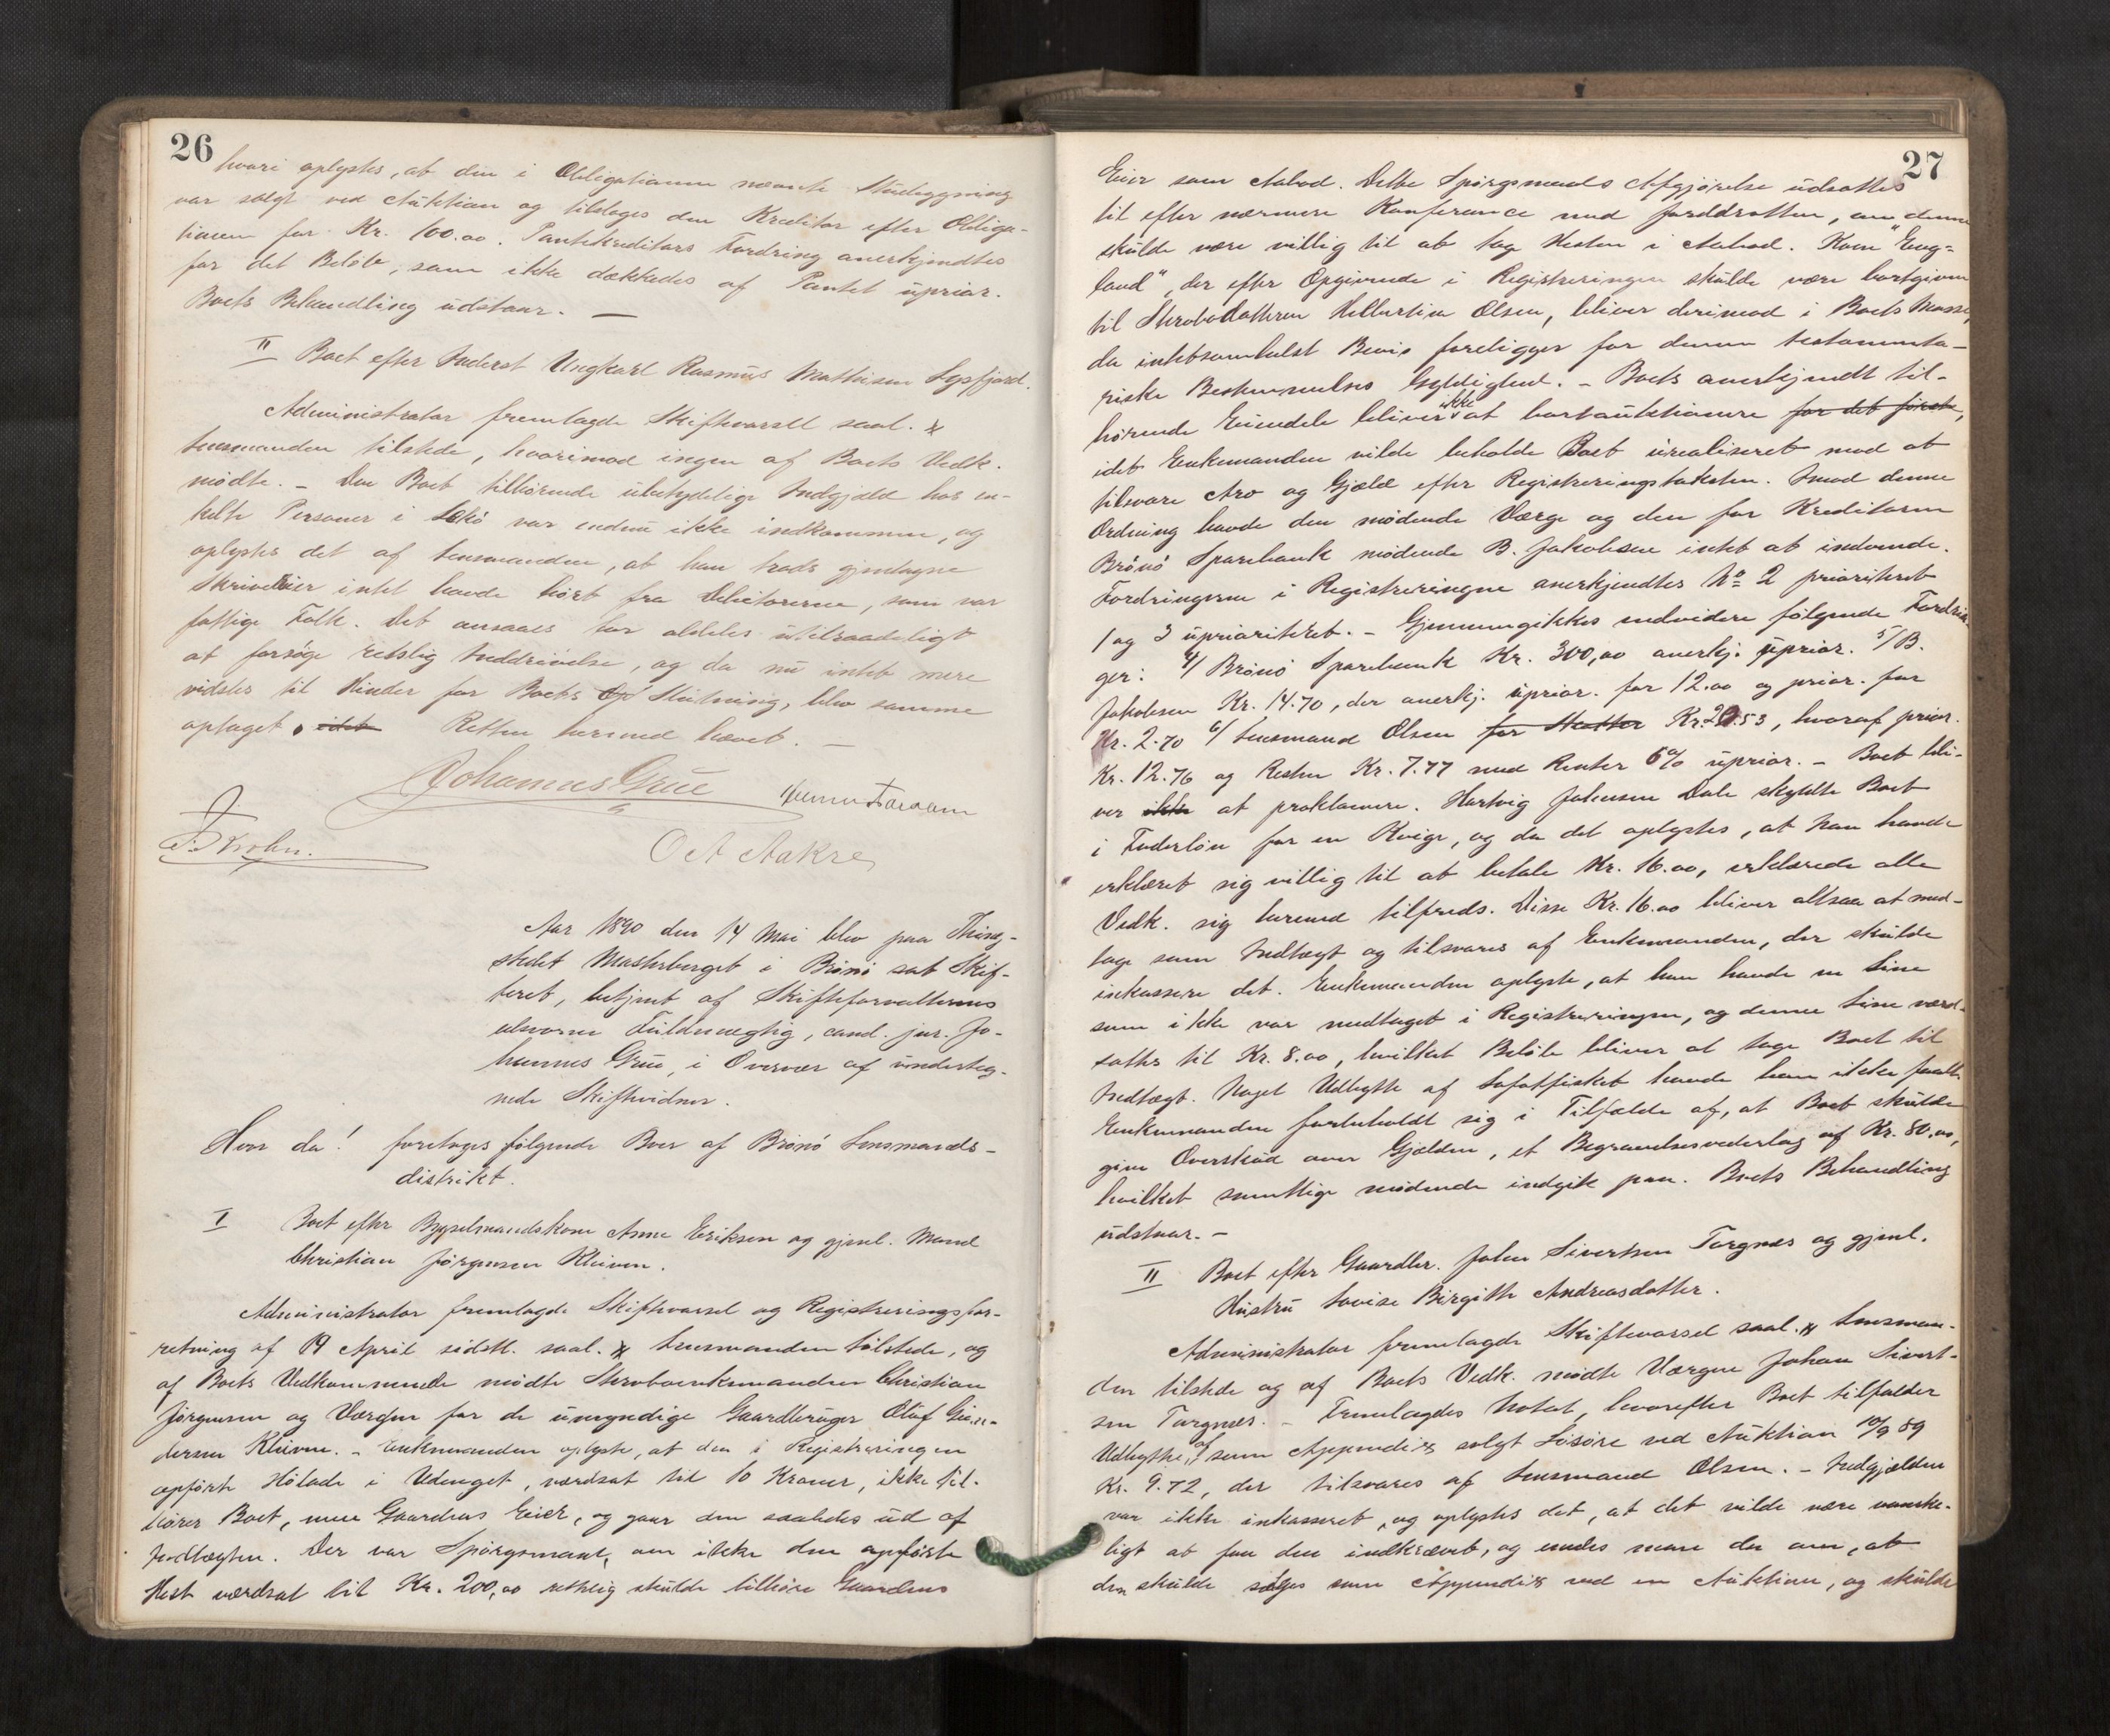 26
hvori oplystes, at den i Obligationen nævnte Studbygning
var solgt ved Auktion og tilsloges den Kreditor efter Obliga-
tionen for Kr. 100.00. Pantekreditors Fordring anerkjendtes
for det Beløb, som ikke dækkedes af Pantet uprior.
Boets Behandling udstaar. —
II Boet efter Inderst Ungkarl Rasmus Mathisen Lysfjord.
Administrator fremlagde Skiftevarsel saal. x
Lensmanden tilstede, hvorimod ingen af Boets Vedk.
mødte. – Den Boet tilhørende ubetydelige Indgjæld hos en-
kelte Personer i Lekø var endnu ikke indkommen, og
oplystes det af Lensmanden, at han trods gjentagne
Skrivelser intet havde hørt fra Debitorerne, som var
fattige Folk. Det ansaaes for aldeles utilraadeligt
at forsøge retslig Inddrivelse, og da nu intet mere
vidstes til Hinder for Boets Slutning, blev samme
optaget, idet Retten hermed hævet. —
Johannes Grue
J. Krohn.
O A Aakre
Aar 1890 den 14 Mai blev paa Thing-
stedet Mosheberget i Brønø sat Skif-
teret, betjent af Skifteforvalterens
edsvorne Fuldmægtig, cand. jur. Jo-
hannes Grue, i Overvær af underteg-
nede Skiftevidner.
Hvor da! foretoges følgende Boer af Brønø Lensmands-
distrikt.
I Boet efter Bygselmandskone Anne Eriksen og gjenl. Mand
Christian Jørgensen Kleiven.
Administrator fremlagde Skiftevarsel og Registreringsfor-
retning af 19 April sidstl. saal. x Lensmanden tilstede, og
af Boets Vedkommende mødte Stervboenkemanden Christian
Jørgensen og Værgen for de umyndige Gaardbruger Oluf
Kleiven. – Enkemanden oplyste, at den i Registreringen
opførte Hølade i Udenget, værdsat til 10 Kroner, ikke til-
hører Boet, men Gaardens Eier, og gaar den saaledes ud af
Indtægten. Der var Spørgsmaal, om ikke den opførte
Hest værdsat til Kr. 200,00 rettelig skulde tilhøre Gaardens
27
Eier som Aabod. Dette Spørgsmaals Afgjørelse udsattes
til efter nærmere Konferance med Jorddrotten, om denne
skulde være villig til at tage Hesten i Aabod. Koen "Eng-
land", der efter Opgivende i Registreringen skulde være bortgiven
til Stervbodatteren Helbertine Olsen, bliver derimod i Boets Masse,
da intetsomhelst Bevis foreligger for denne testamenta-
riske Bestemmelses Gyldighed. – Boets anerkjendt til-
hørende Eiendele bliver ikke at bortauktionere for det første,
idet Enkemanden vilde beholde Boet urealiseret mod at
tilsvare Arv og Gjæld efter Registreringstaksten. Imod denne
Ordning havde den mødende Værge og den for Kreditoren
Brønø Sparebank mødende B. Jakobsen intet at indvende.
Fordringerne i Registreringen anerkjendtes No 2 prioriteret
1 og 3 uprioriteret. – Gjennemgikkes endvidere følgende Fordrin-
ger: 4/ Brønø Sparebank Kr. 300,00 anerkj. uprior. 5/ B.
Jakobsen Kr. 14.70, der anerkj. uprior. for 12.00 og prior. for
Kr. 2.70 6/ Lensmand Olsen for Skatter Kr. 20.53, hvoraf prior.
Kr. 12.76 og Resten Kr. 7.77 med Renter 6% uprior. – Boet bli-
ver ikke at proklamere. Hartvig Johnsen Dale skyldte Boet
i Foderløn for en Kvige, og da det oplystes, at han havde
erklæret sig villig til at betale Kr. 16.00, erklærede alle
Vedk. sig hermed tilfreds. Disse Kr. 16.00 bliver altsaa at med-
tage som Indtægt og tilsvares af Enkemanden, der skulde
inkassere det. Enkemanden oplyste, at han havde en Line
som ikke var medtaget i Registreringen, og denne Line værd-
sattes til Kr. 8.00, hvilket Beløb bliver at tage Boet til
Indtægt. Noget Udbytte af Lofotfisket havde han ikke faaet.
Enkemanden forbeholdt sig i Tilfælde af, at Boet skulde
give Overskud over Gjælden, et Begravelsesvederlag af Kr. 80.00,
hvilket samtlige mødende indgik paa. Boets Behandling
udstaar. –
II Boet efter Gaardbr. John Sivertsen Torgnes og gjenl.
Hustru Lovise Birgitte Andreasdatter.
Administrator fremlagde Skiftevarsel saal. x Lensman-
den tilstede og af Boets Vedk. mødte Værgen Johan Sivert-
sen Torgnes. – Fremlagdes Notat, hvorefter Boet tilfalder
Udbytte af som Appendix solgt Løsøre ved Auktion 10/9 89
Kr. 9.72, der tilsvares af Lensmand Olsen. – Indgjælden
var ikke inkasseret, og oplystes det, at det vilde være vanske-
ligt at faa den indkrævet, og enedes man da om, at
den skulde sælges som Appendix ved en Auktion, og skulde